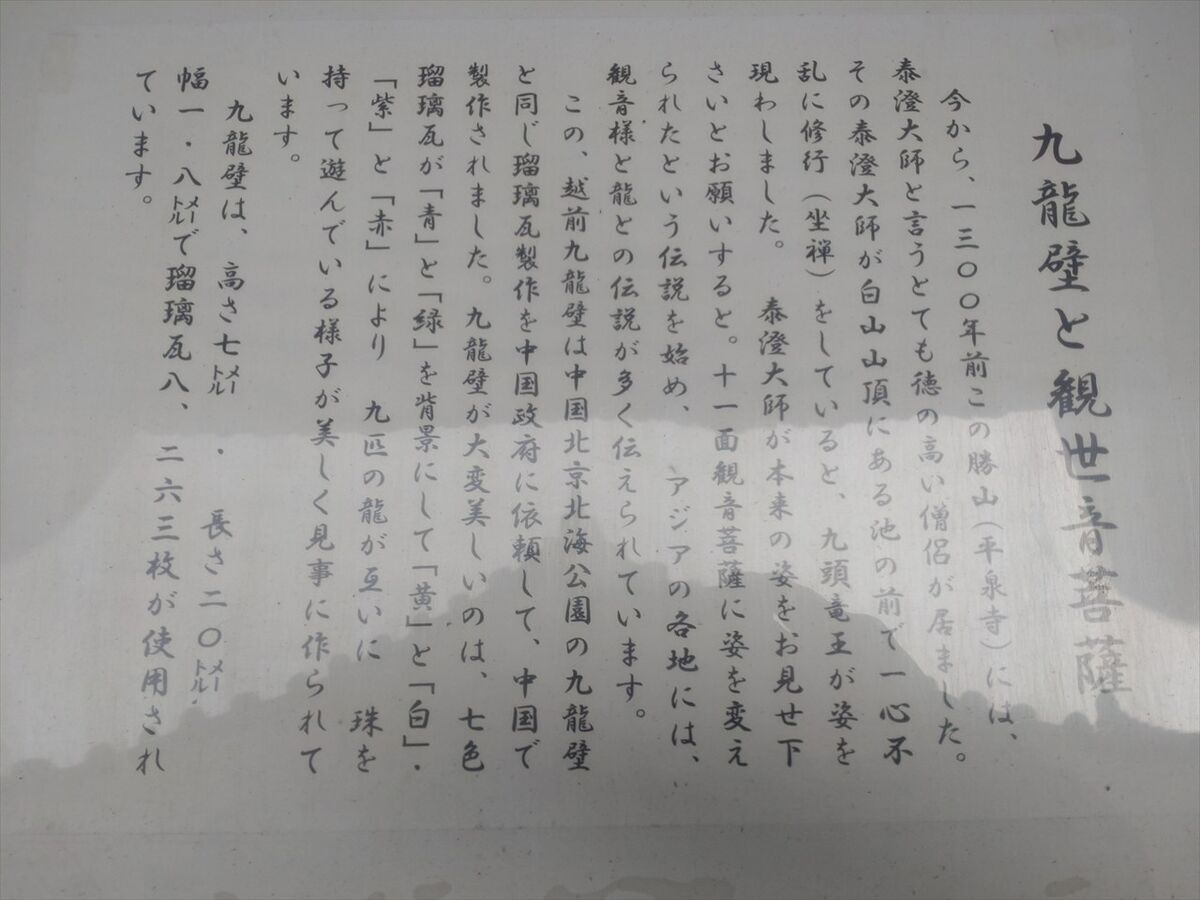 九龍壁と観世音菩薩
今から、一三〇〇年前この勝山(平泉寺)には、
泰澄大師と言うとても徳の高い僧侶が居ました。
その泰澄大師が白山山頂にある池の前で一心不
乱に修行(坐禅)をしていると、九頭竜王が姿を
現わしました。 泰澄大師が本来の姿をお見せ下
さいとお願いすると。十一面観音菩薩に姿を変え
られたという伝説を始め、 アジアの各地には、
観音様と龍との伝説が多く伝えられています。
この、越前九龍壁は中国北京北海公園の九龍壁
と同じ瑠璃瓦製作を中国政府に依頼して、中国で
製作されました。九龍壁が大変美しいのは、七色
瑠璃瓦が「青」と「緑」を背景にして「黄」と「白」・
「紫」と「赤」により 九匹の龍が互いに 珠を
持って遊んでいる様子が美しく見事に作られて
います。
九龍壁は、高さ七メートル・長さ二〇メートル・
幅一・八メートルで瑠璃瓦八、二六三枚が使用され
ています。